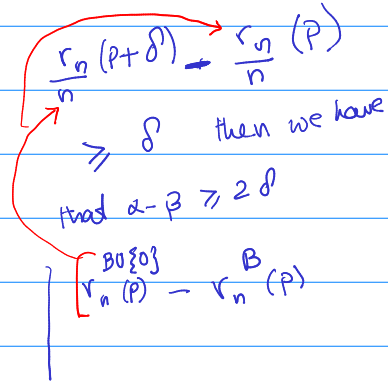 r_n/n (p+δ) - r_n/n (p)
⩾ δ then we have
that α-β ⩾ 2δ
r_n^{B∪{0}} (p) - r_n^B (p)